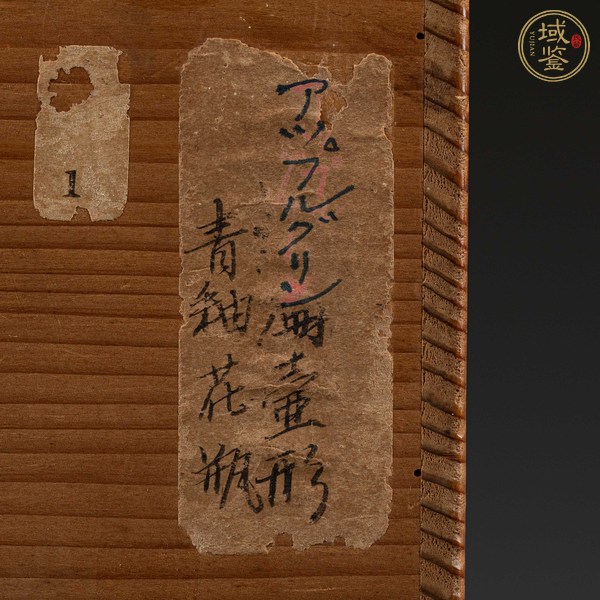 アップルグリン
壺形
青釉花瓶
1
域鉴
YUJIAN